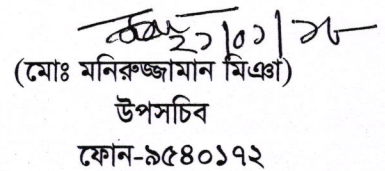 ২১/০১/১৮
(মোঃ মনিরুজ্জামান মিঞা)
উপসচিব
ফোন-৯৫৪০১৭২